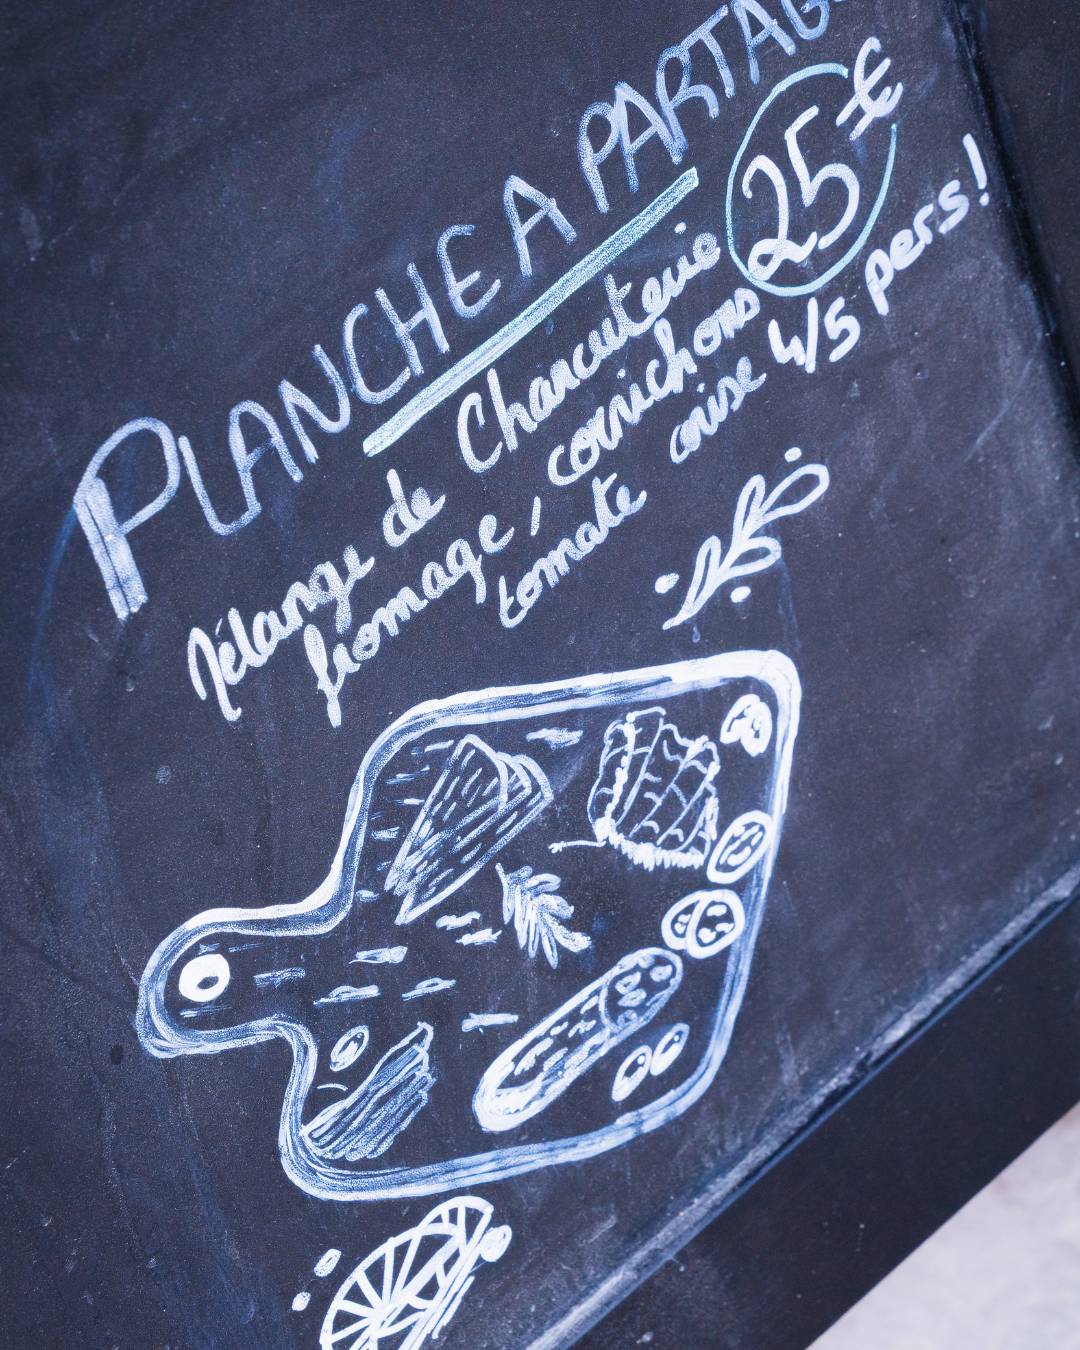 PLANCHE A PARTAG
25 €
Mélange de Charcuterie
fromage, cornichons
tomate cerise 4/5 pers!